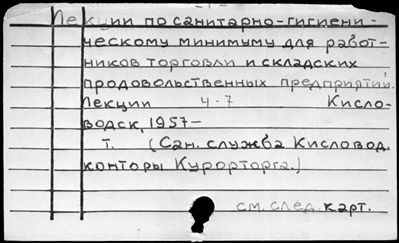 - 1 -
Лекции по санитарно-гигиени-
ческому минимуму для работ-
ников торговли и складских
продовольственных предприятий.
Лекции 4-7 Кисло-
водск, 1957-
т. (Сан. служба Кисловод.
конторы Курорторга.)
см. след. карт.